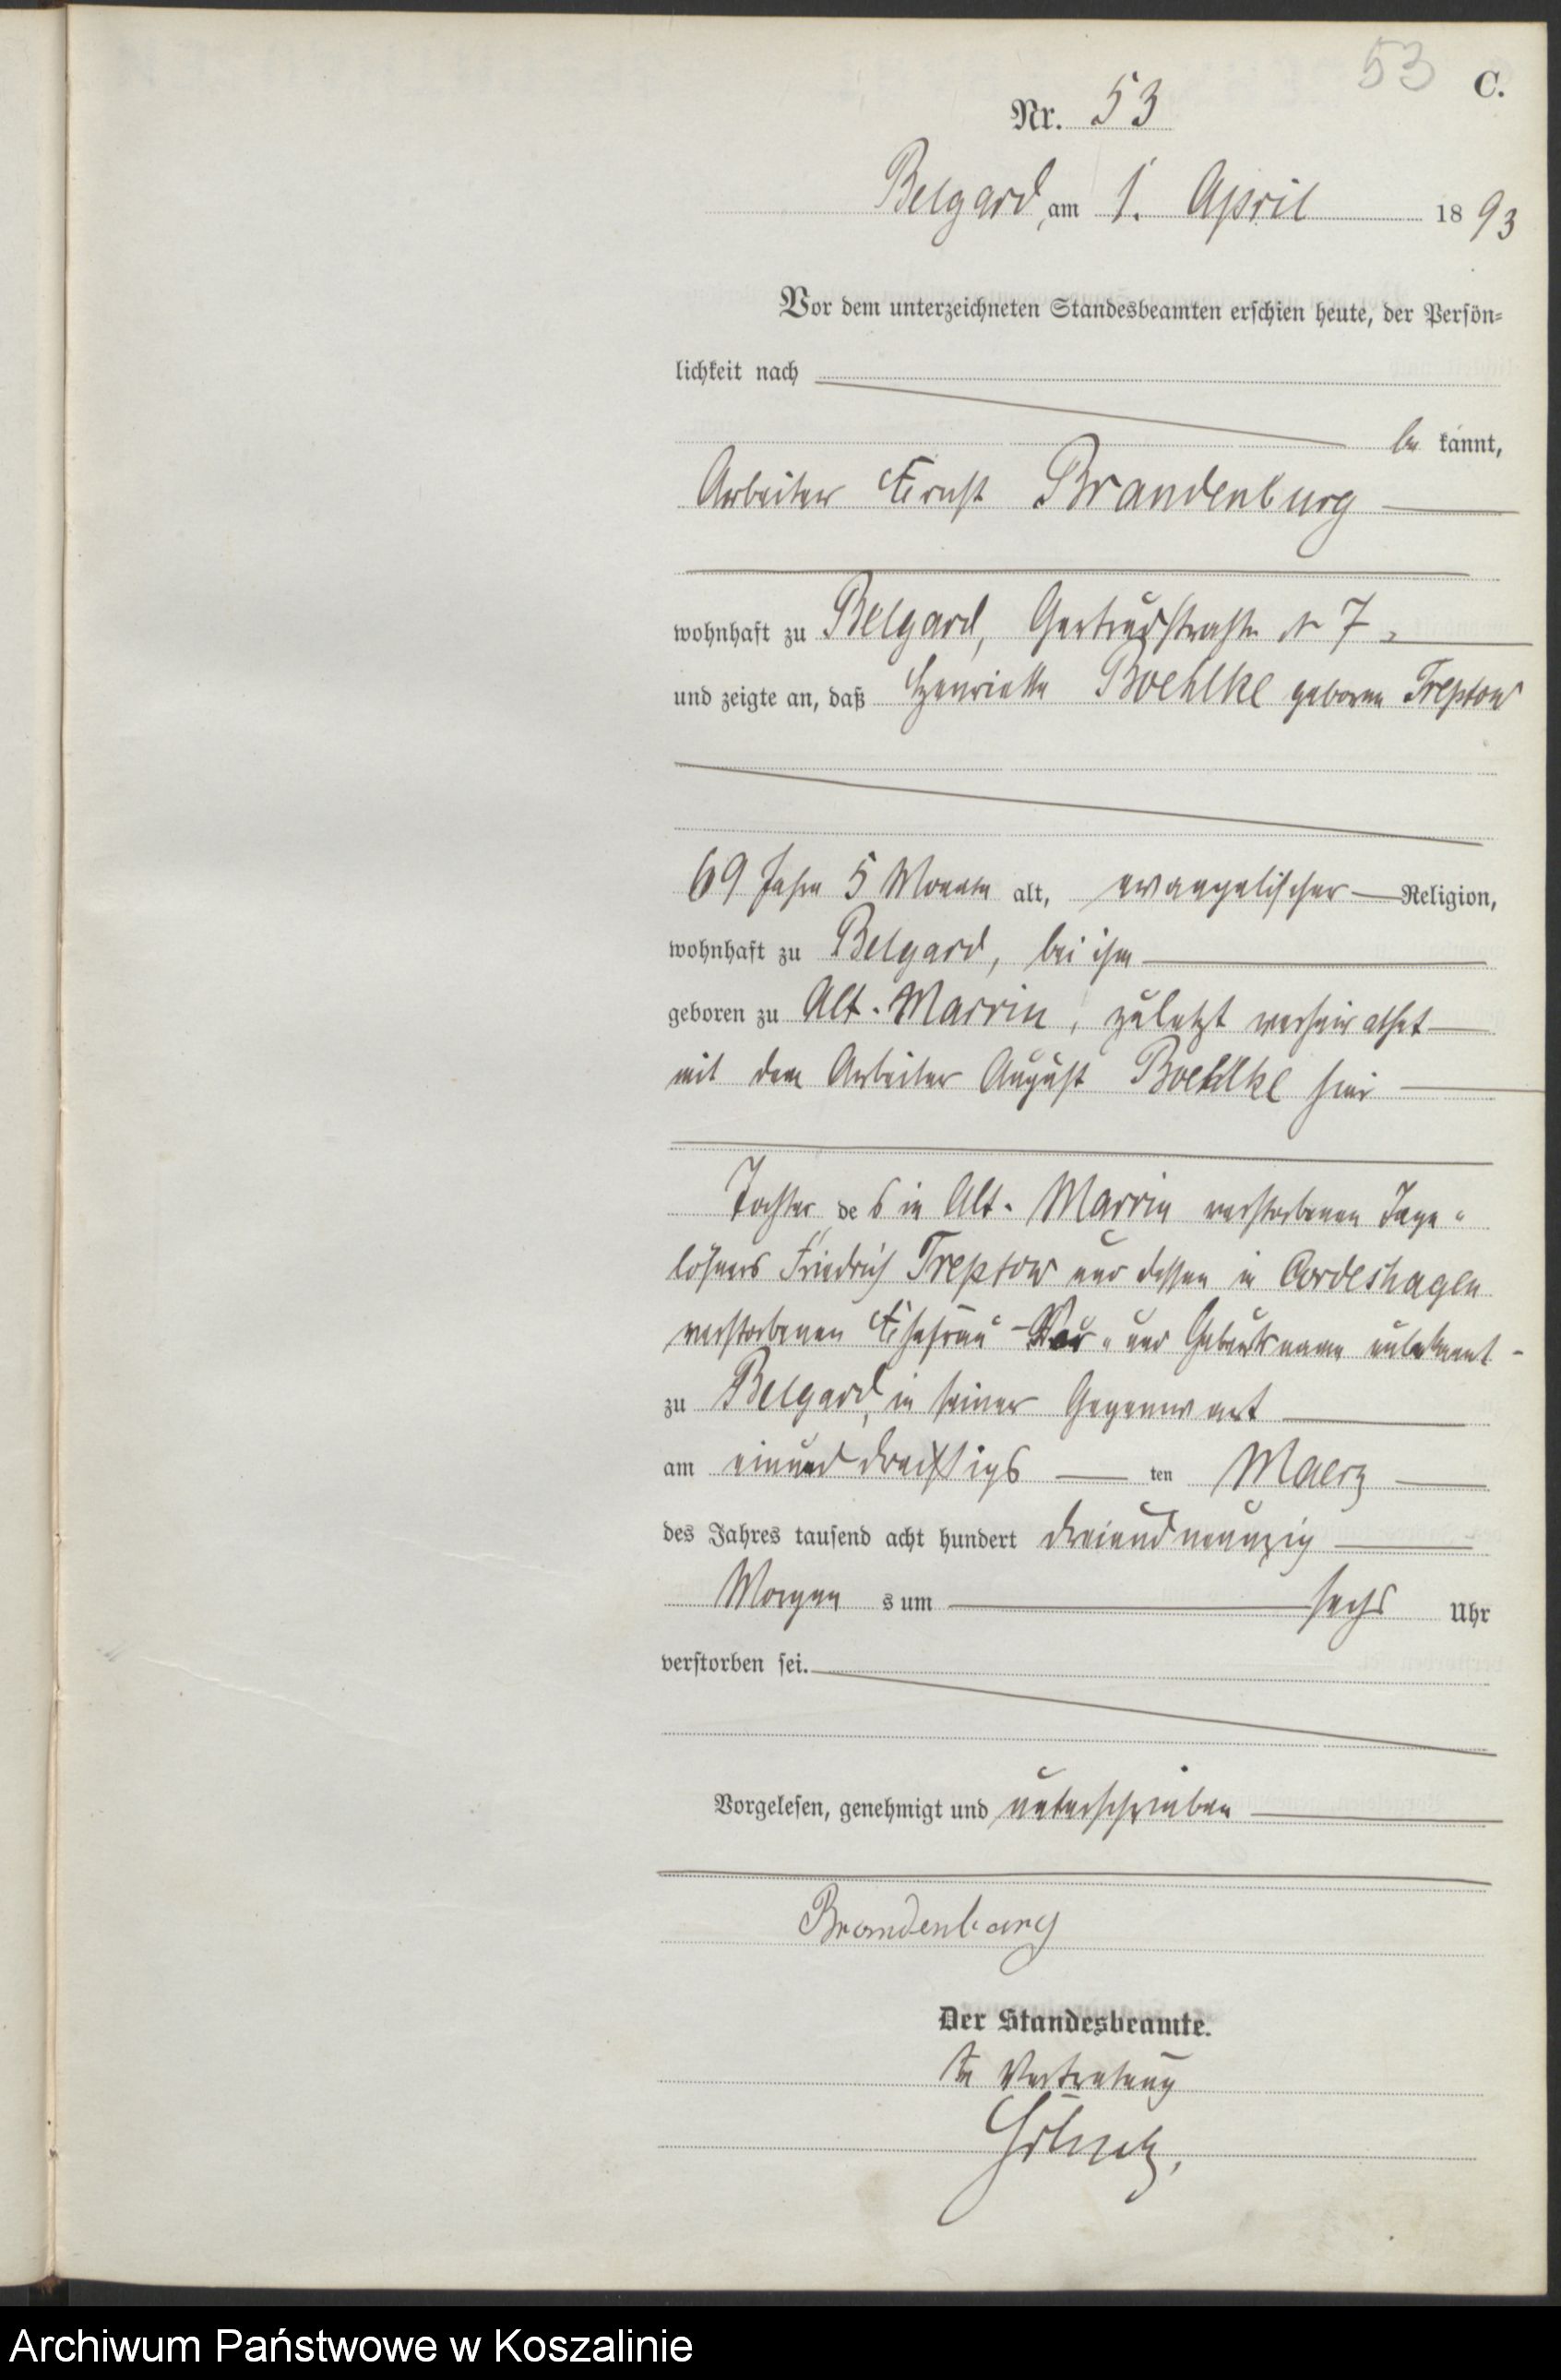 53
C.
Nr. 53
Belgard, am 1. April 1893
Vor dem unterzeichneten Standesbeamten erschien heute, der Persön-
lichkeit nach
be kannt,
Arbeiter Ernst Brandenburg
wohnhaft zu Belgard, Gertrudstraße № 7,
und zeigte an, daß Henriette Boehlke geborene Treptow
69 Jahre 5 Monate alt, evangelischer Religion,
wohnhaft zu Belgard, bei ihm
geboren zu Alt-Marrin, zuletzt verheirathet
mit dem Arbeiter August Boehlke hier
Tochter des in Alt-Marrin verstorbenen Tage-
löhners Friedrich Treptow und dessen in Cordeshagen
verstorbenen Ehefrau - Vor- und Geburtsname unbekannt -
zu Belgard, in seiner Gegenwart
am einunddreißigs ten Maerz
des Jahres tausend acht hundert dreiundneunzig
Morgen s um sechs Uhr
verstorben sei.
Vorgelesen, genehmigt und unterschrieben
Brandenburg
Der Standesbeamte.
In Vertretung
Archiwum Państwowe w Koszalinie